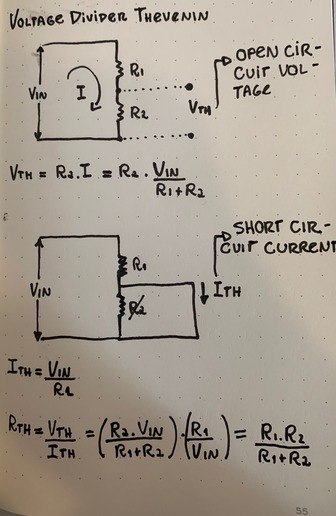 VOLTAGE DIVIDER THEVENIN
VIN
I
R1
R2
VTH
OPEN CIR-
CUIT VOL-
TAGE
VTH = R2.I = R2 . VIN
R1+R2
VIN
R1
R2
SHORT CIR-
CUIT CURRENT
ITH
ITH = VIN
R1
RTH = VTH = (R2.VIN) . (R1) = R1.R2
ITH R1+R2 VIN R1+R2
55